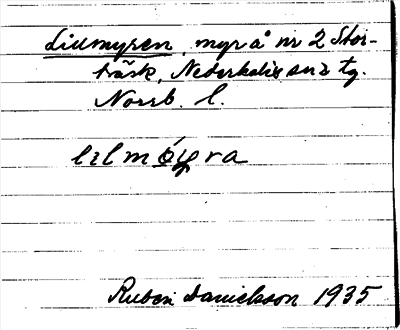 Lillmyren, myr å nr 2 Stor-
träsk, Nederkalix sn o tg.
Norrb. l.
Ruben Danielsson 1935